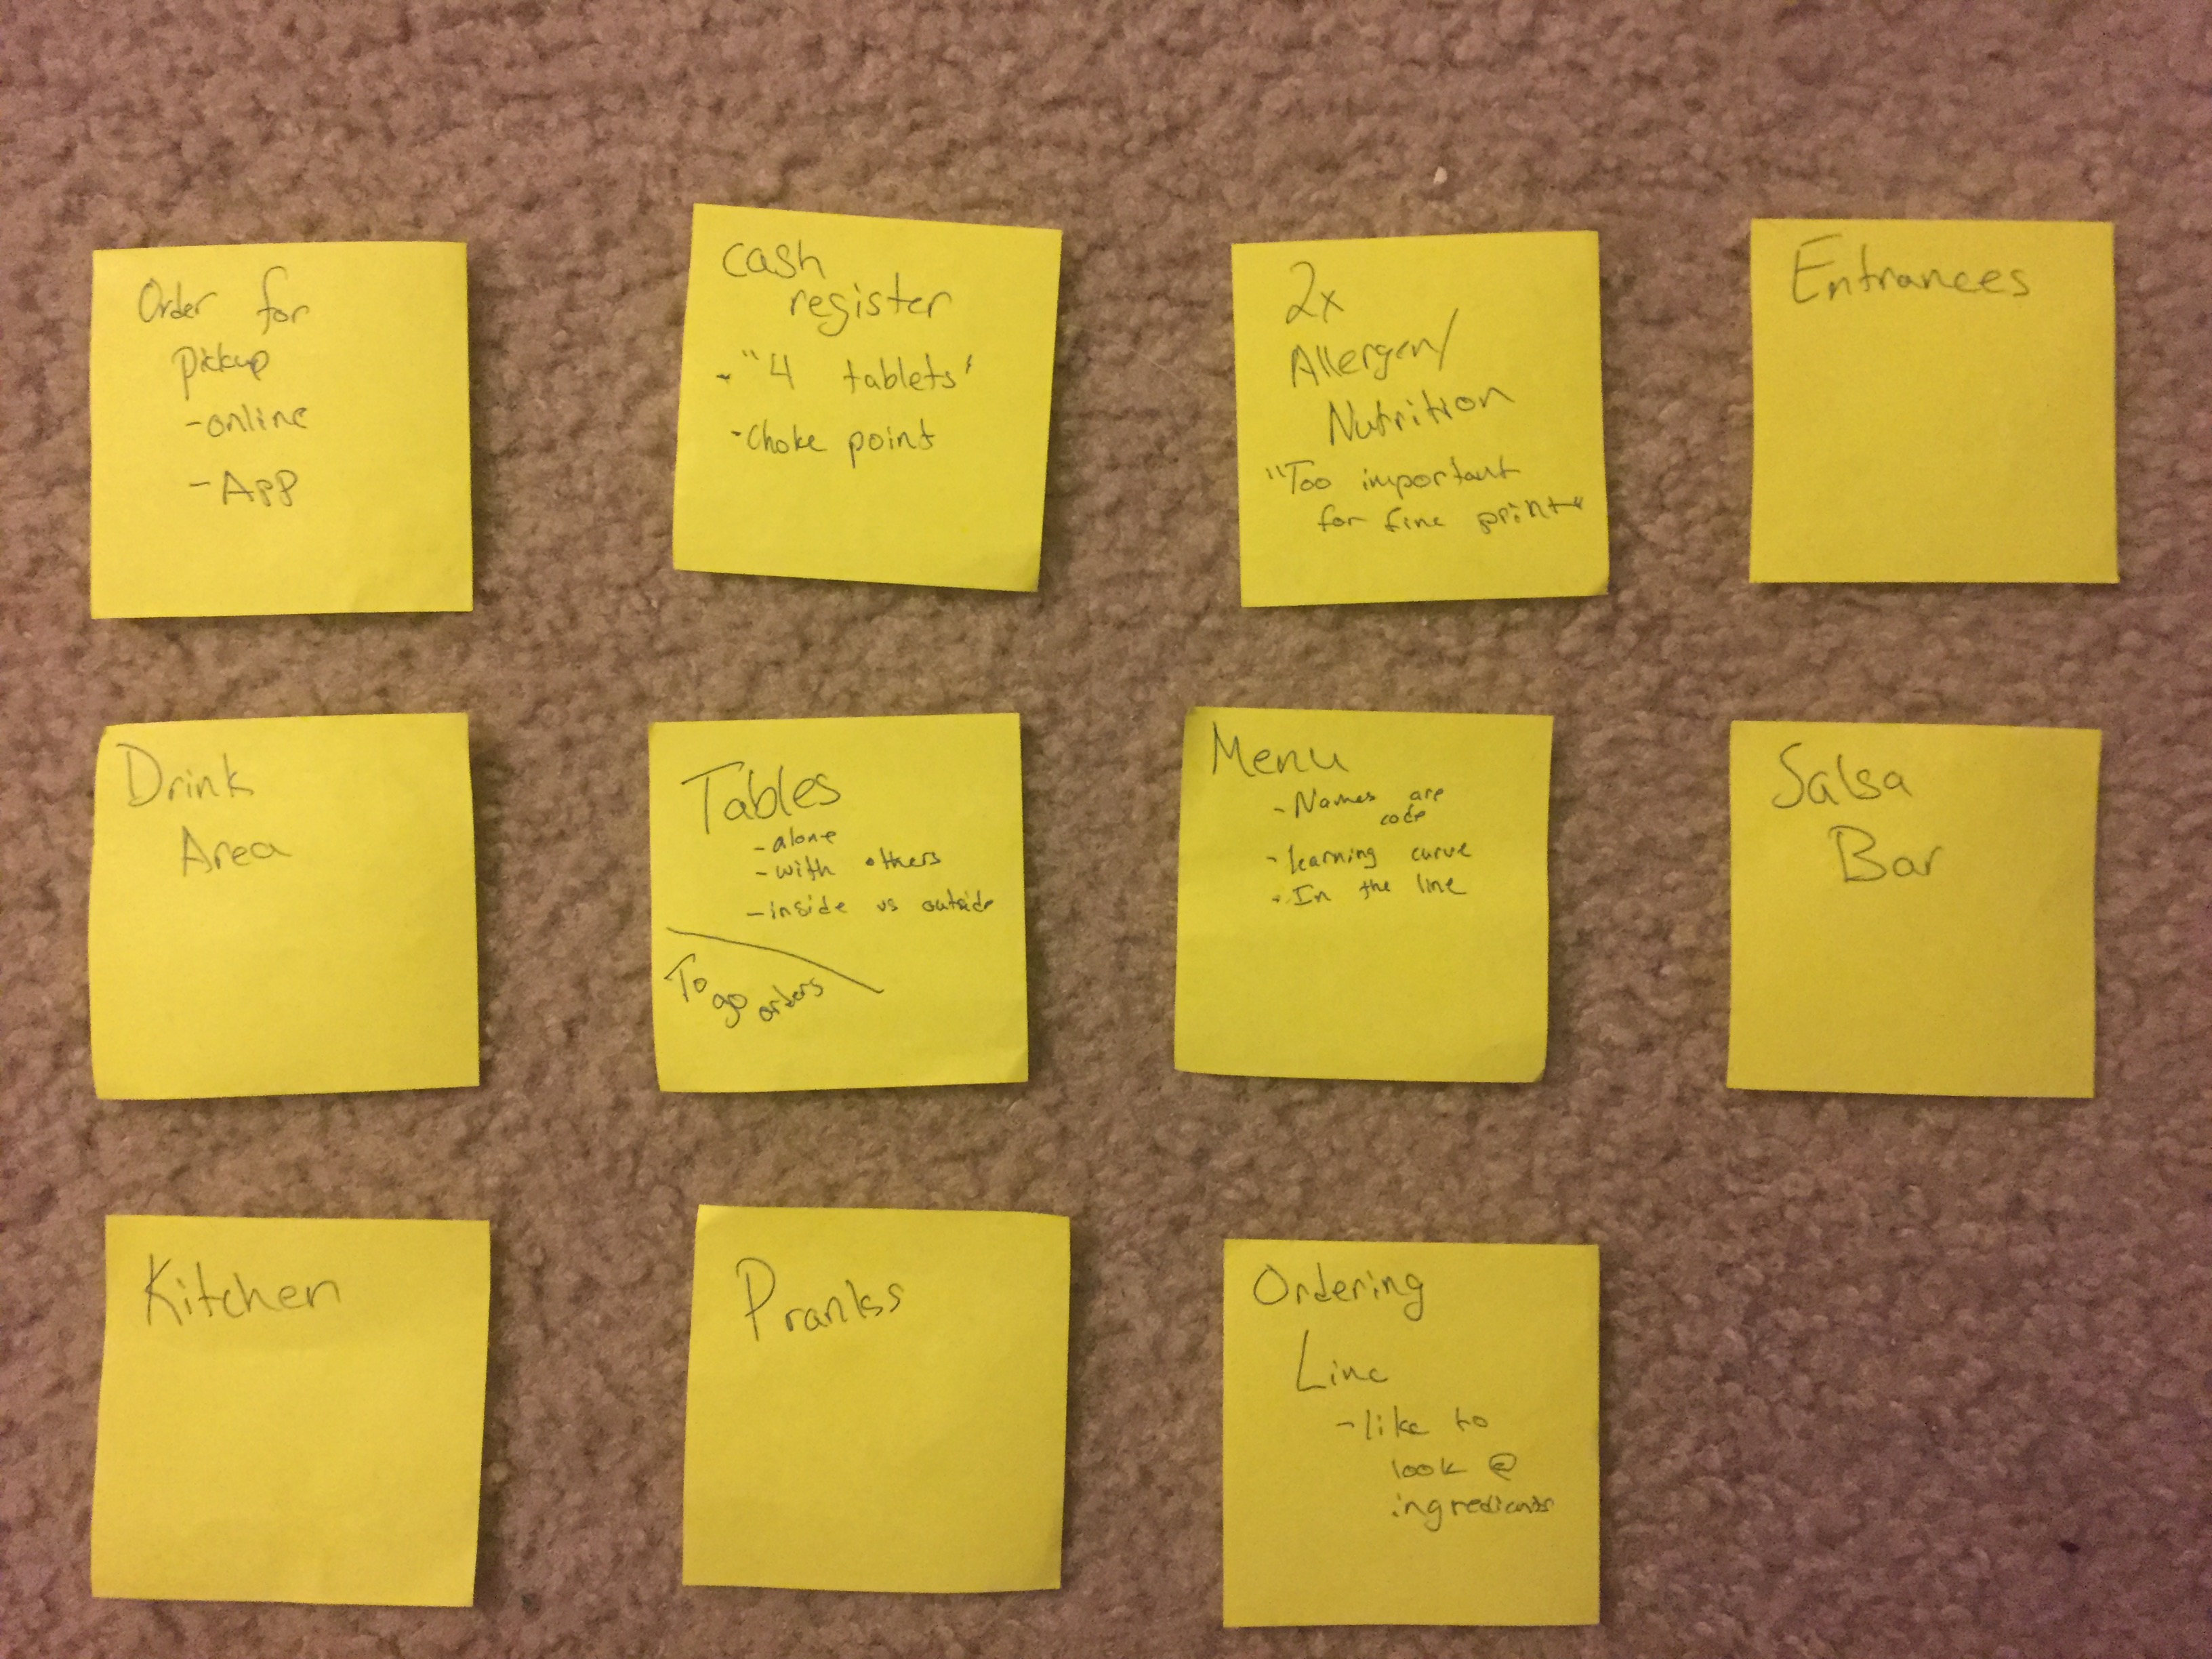 Order for
pickup
-online
-App
cash
register
- "4 tablets'
- Choke point
2x
Allergen/
Nutrition
"Too important
for fine print"
Entrances
Drink
Area
Tables
-alone
-with others
-inside vs outside
To go orders
Menu
-Names are
code
-learning curve
-In the line
Salsa
Bar
Kitchen
Pranks
Ordering
Line
-like to
look @
ingredients